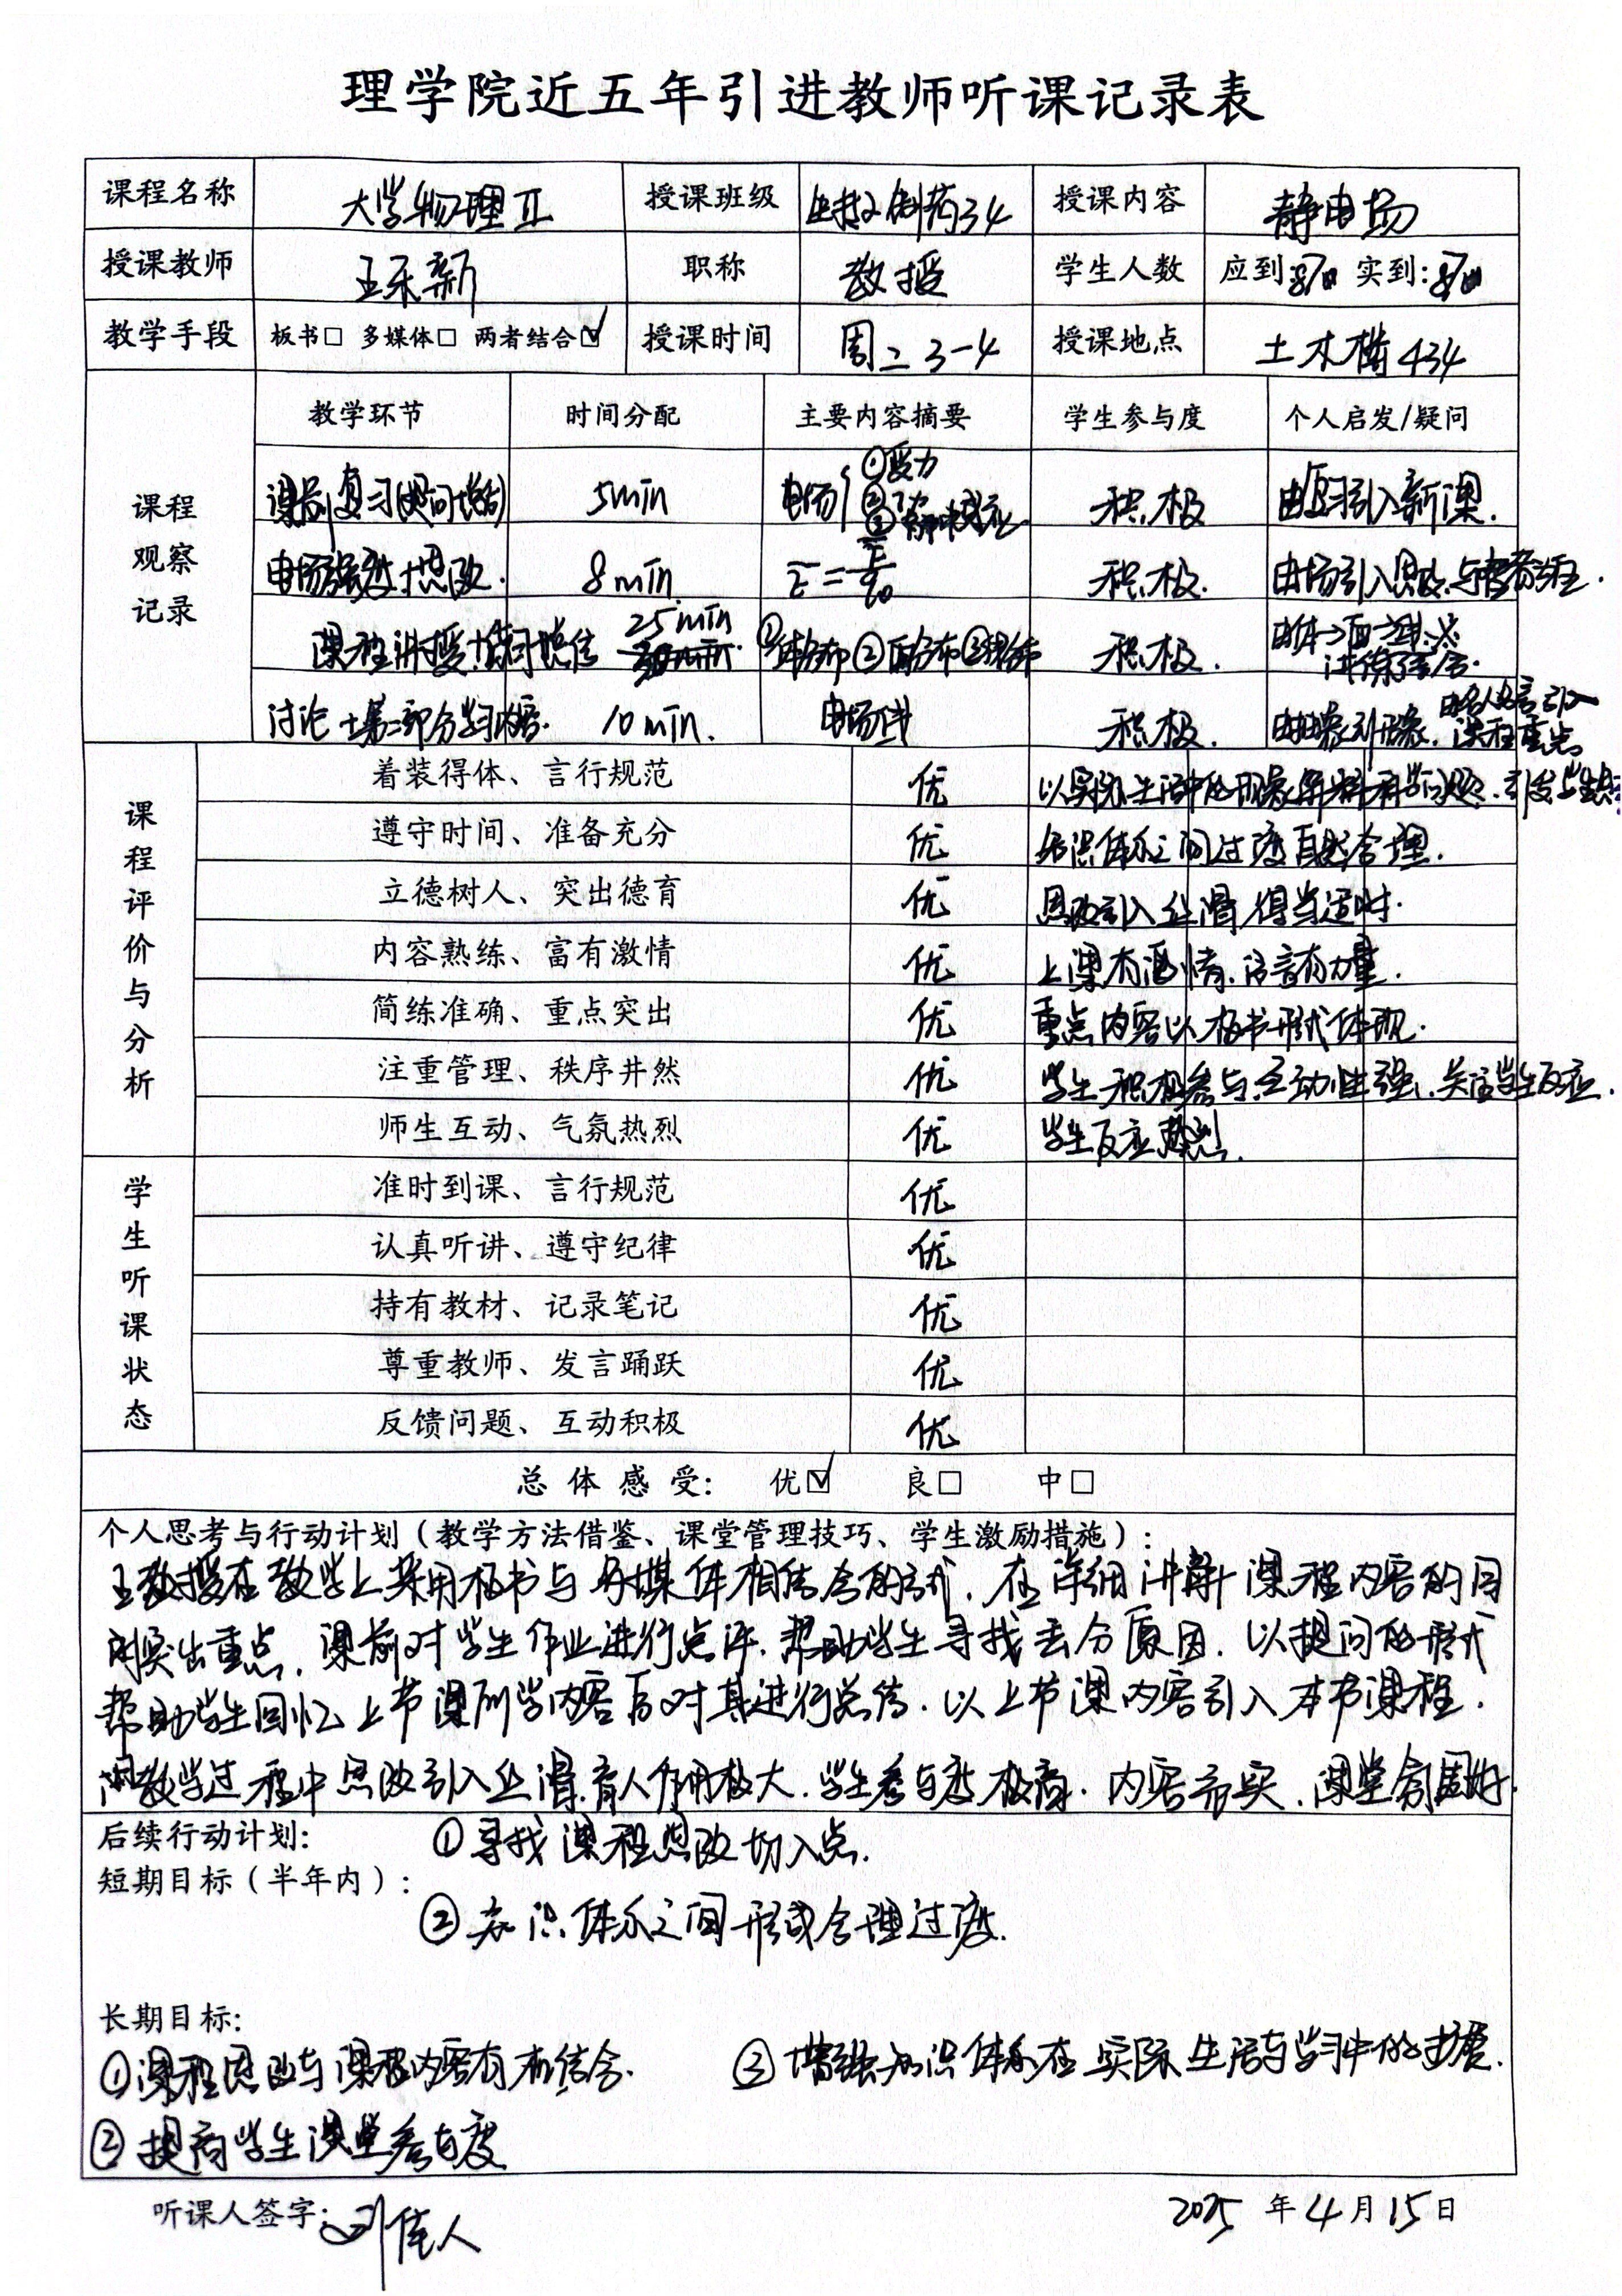 理学院近五年引进教师听课记录表
课程名称 大学物理Ⅱ 授课班级 制药34 授课内容 静电场
授课教师 王新 职称 教授 学生人数 应到: 实到:
教学手段 板书□ 多媒体□ 两者结合☑ 授课时间 周二 3-4 授课地点 土木楼434
课程观察记录
教学环节 时间分配 主要内容摘要 学生参与度 个人启发/疑问
课前复习(提问+总结) 5min 电场 ①受力 ② ③ 积极 由复习引入新课.
电场强度+思政. 8min 积极. 由场引入思政,与
课程讲授+提问+总结 25min ①体分布②面分布③线分布 积极. 由体→面→线 讲练结合.
讨论+第二部分学习内容. 10min. 电场线 积极. 由抽象到形象. 由名人名言引入课程重点
课程评价与分析
着装得体、言行规范 优 以实际生活中的现象解释科学问题.引发学生
遵守时间、准备充分 优 知识体系之间过度自然合理.
立德树人、突出德育 优 思政引入丝滑,得当适时.
内容熟练、富有激情 优 上课有激情,语言有力量.
简练准确、重点突出 优 重点内容以板书形式体现.
注重管理、秩序井然 优 学生积极参与,互动性强,关注学生反应.
师生互动、气氛热烈 优 学生反应热烈.
学生听课状态
准时到课、言行规范 优
认真听讲、遵守纪律 优
持有教材、记录笔记 优
尊重教师、发言踊跃 优
反馈问题、互动积极 优
总体感受: 优☑ 良□ 中□
个人思考与行动计划（教学方法借鉴、课堂管理技巧、学生激励措施）:
王教授在教学上采用板书与多媒体相结合的形式,在详细讲解课程内容的同
时突出重点,课前对学生作业进行点评,帮助学生寻找丢分原因.以提问的形式
帮助学生回忆上节课所学内容后对其进行总结.以上节课内容引入本节课程.
教学过程中思政引入丝滑,育人作用极大.学生参与度极高.内容充实,课堂氛围好.
后续行动计划: ①寻找课程思政切入点.
短期目标（半年内）:
②知识体系之间形成合理过度.
长期目标:
①课程思政与课程内容有机结合. ③增强知识体系在实际生活与学习中的扩展.
②提高学生课堂参与度
听课人签字: 刘佳人 2025年4月15日